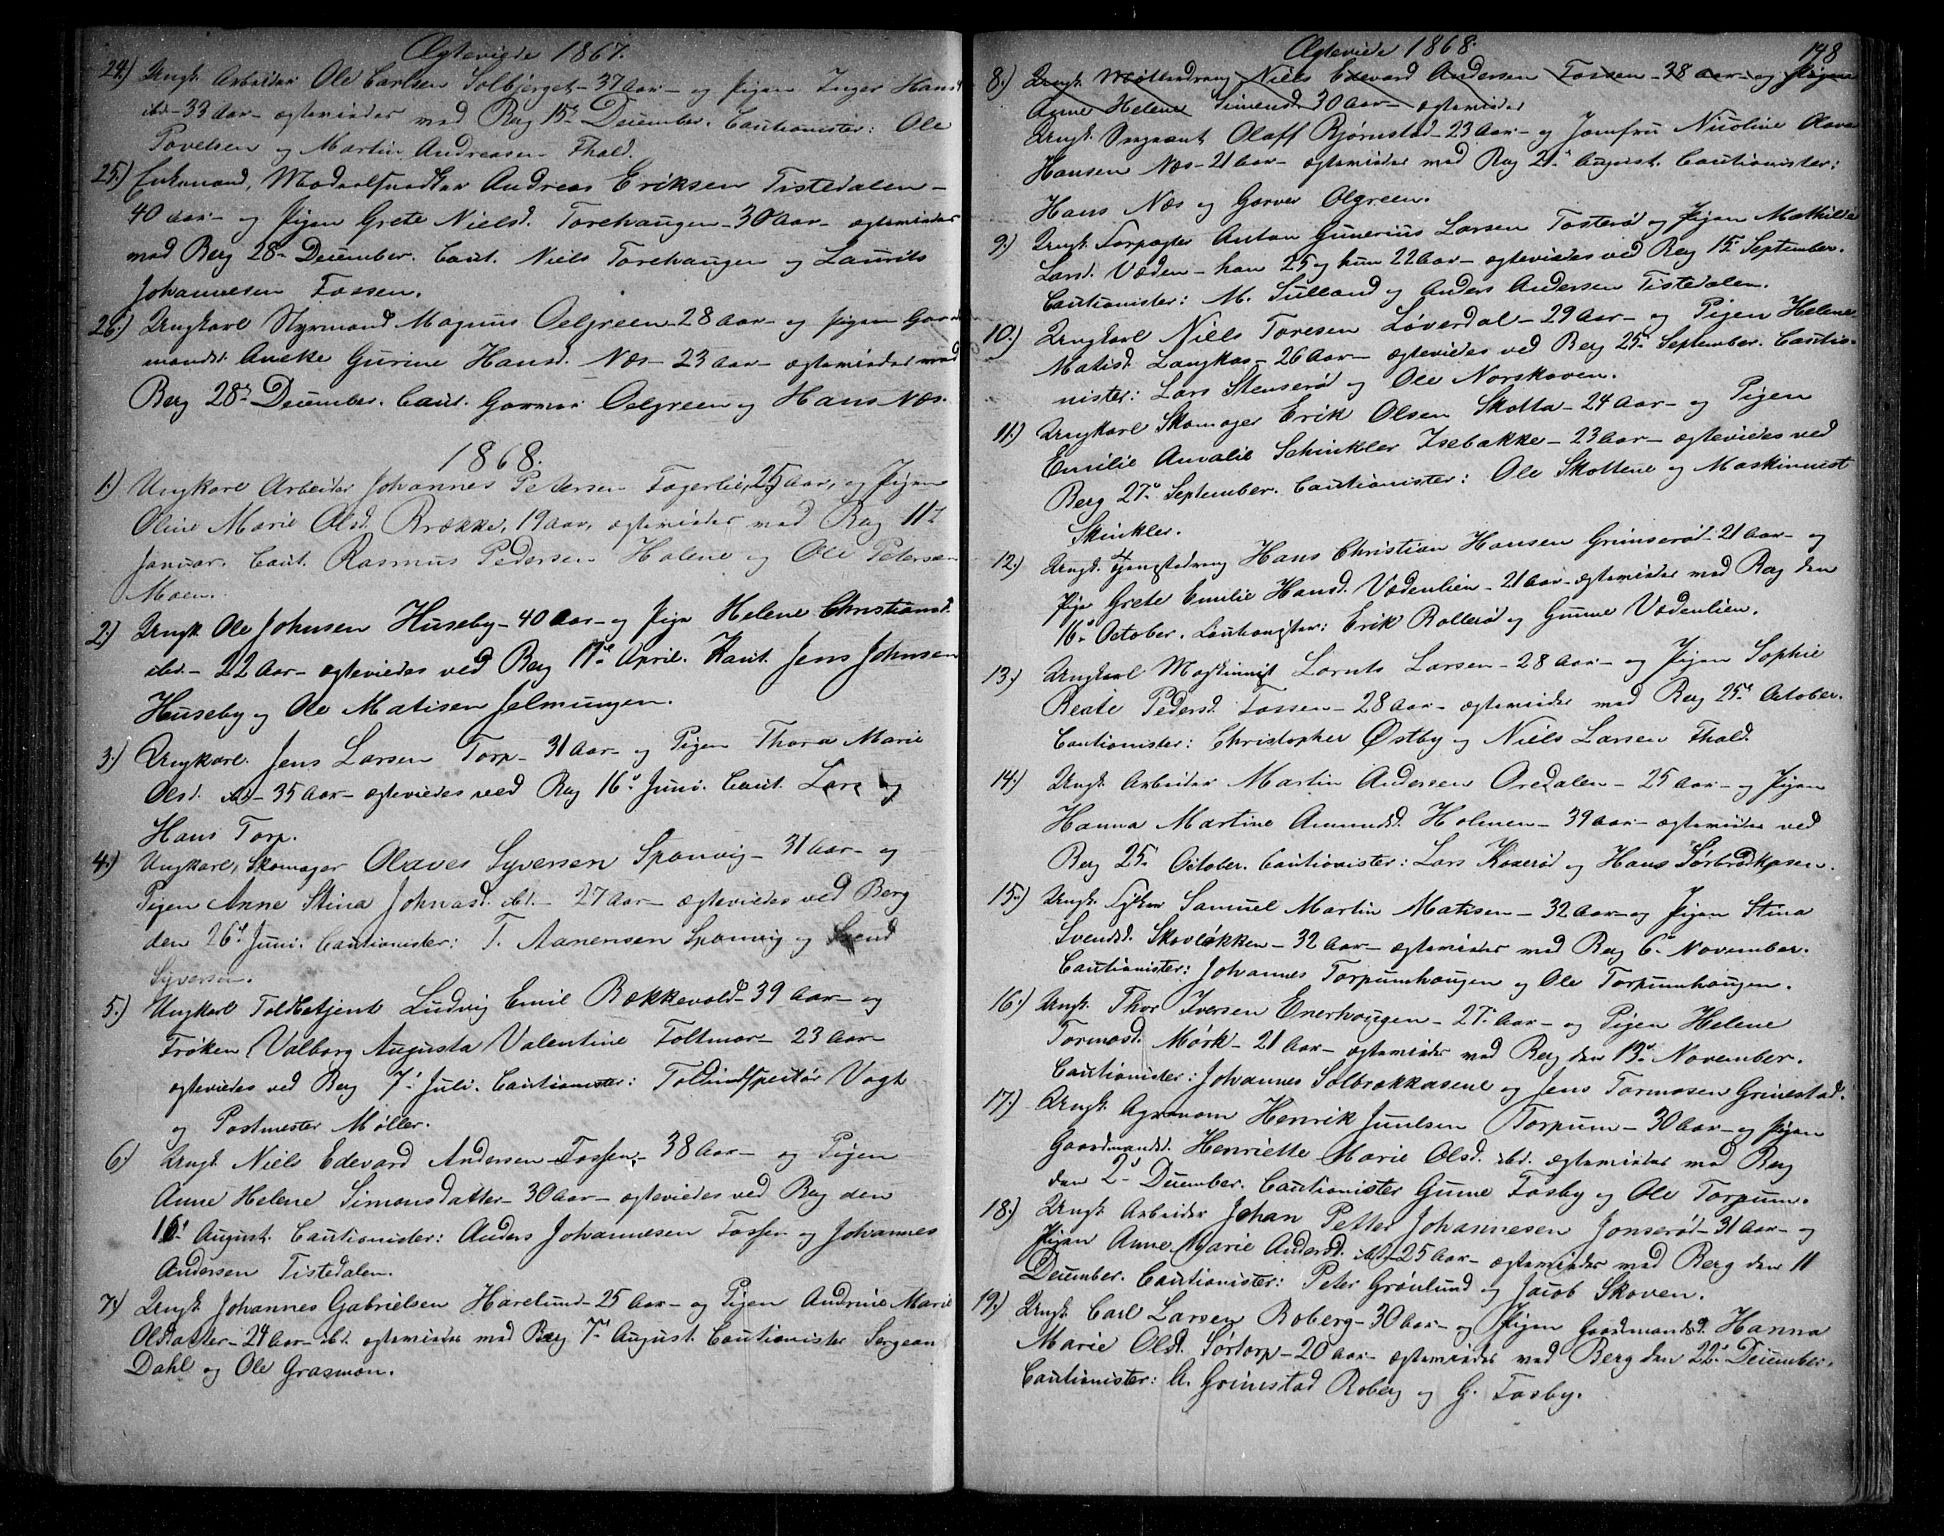 Ægteviede 1867.
24.) Ungk. Arbeider Ole Carlsen Solbjerget - 37 Aar - og Pigen Inger Hansd.
ibd - 33 Aar - ægteviedes ved Berg 15de December. Cautionister: Ole
Povelsen og Martin Andreasen Fhald.
25.) Enkemand, Andreas Eriksen Tistedalen -
40 Aar - og Pigen Grete Nielsd. Torehaugen - 30 Aar - ægteviedes
ved Berg 28de December. Caut. Niels Torehaugen og Laurits
Johannesen Fossen.
26.) Ungkarl Styrmand Magnus Oelgreen - 28 Aar - og Pigen
Gurine Hansd. Næs - 23 Aar - ægteviedes ved
Berg 28de December. Caut. Garver Oelgreen og Hans Næs.
1868.
1.) Ungkarl Arbeider Johannes Petersen Fagerlie, 25 Aar, og Pigen
Oline Marie Olsd. Brække, 19 Aar, ægteviedes ved Berg 11te
Januar. Caut. Rasmus Pedersen Holene og Ole Petersen
Moen.
2.) Ungk. Ole Johnsen Huseby - 40 Aar - og Pige Helene Christiansd.
ibd. - 22 Aar - ægteviedes ved Berg 17de April. Kaut. Jens Johnsen
Huseby og Ole Matisen
3.) Ungkarl. Jens Larsen Torp - 31 Aar - og Pigen Thora Marie
Olsd. ibd - 35 Aar - ægteviedes ved Berg 16de Juni. Caut. Lars og
Hans Torp.
4.) Ungkarl, Skomager Olaves Syversen Sponvig - 31 Aar - og
Pigen Anne Stina Johnasd. ibd. - 27 Aar - ægteviedes ved Berg
den 26de Juni. Cautionister: T. Aanensen Sponvig og Svend
Syversen.
5.) Ungkarl Toldbetjent Ludvig Emil Bækkevold - 39 Aar - og
Frøken Valborg Augusta Valentine Foltmar - 23 Aar -
ægteviedes ved Berg 7de Juli. Cautionister: Toldindspektør Vogt
og Postmester Møller.
6.) Ungk. Niels Edevard Andersen Fossen - 38 Aar - og Pigen
Anne Helene Simonsdatter - 30 Aar - ægteviedes ved Berg den
16de August. Cautionister: Anders Johannesen Fossen og Johannes
Andersen Tistedalen.
7.) Ungk. Johannes Gabrielsen Harelund - 25 Aar - og Pigen Andrine Marie
Olsdatter - 24 Aar - ibd. ægteviedes ved Berg 7de August. Cautionister Sergean
Dahl og Ole Grasmon.
Ægteviede 1868.
178
8.) Ungk. Møllerdreng Niels Edevard Andersen Fossen - 38 Aar - og Pigen
Anne Helene Simensd. 30 Aar - ægteviedes
Ungk. Sergeant Olaff Bjørnstad - 23 Aar - og Jomfru Nicoline Olava
Hansen Næs - 21 Aar - ægteviedes ved Berg 21de August. Cautionister:
Hans Næs og Garver Olgreen.
9.) Ungk. Forpagter Anton Gunerius Larsen Tosterø og Pigen Mathilde
Larsd. Væden - han 25 og hun 22 Aar - ægteviedes ved Berg 15de September.
Cautionister: M. Sulland og Anders Andersen Tistedalen.
10.) Ungkarl Niels Toresen Løverdal - 29 Aar - og Pigen Helene
Matisd. Langkas - 26 Aar - ægteviedes ved Berg 25de September. Cautio-
nister: Lars Stenserød og Ole Norskoven.
11.) Ungkarl Skomager Erik Olsen Skotta - 24 Aar - og Pigen
Emilie Amalie Schinkler Isebakke - 23 Aar - ægteviedes ved
Berg 27de September. Cautionister: Ole Skottene og Maskinmist
Skinkler.
12.) Ungk. Tjenestedreng Hans Christian Hansen Grimserød - 21 Aar - og
Pige Grete Emilie Hansd. Vædenlien - 21 Aar - ægteviedes ved Berg den
16de October. Cautionister: Erik Rollerø og Gunne Vædenlien.
13.) Ungkarl Maskinmist Lornts Larsen - 28 Aar - og Pigen Sophie
Beate Pedersd. Fossen - 28 Aar - ægteviedes ved Berg 25de October.
Cautionister: Christopher Østby og Niels Larsen Fhald.
14.) Ungk. Arbeider Martin Andersen Oredalen - 25 Aar - og Pigen
Hanna Martine Amundsd. Holmen - 39 Aar - ægteviedes ved
Berg 25de October. Cautionister: Lars Koxerød og Hans Sørbrødkasen.
15.) Ungk. Samuel Martin Matisen - 32 Aar - og Pigen Stina
Svendsd. Skovløkken - 32 Aar - ægteviedes ved Berg 6te November.
Cautionister: Johannes Torpumhaugen og Ole Torpumhaugen.
16.) Ungk. Thor Iversen Enerhaugen - 27 Aar - og Pigen Helene
Tormosd. Mørk - 21 Aar - ægteviedes ved Berg den 13de November.
Cautionister: Johannes Solbrækkasene og Jens Tormosen Grimestad.
17.) Ungk. Agronom Henrik Juulsen Torpum - 30 Aar - og Pigen
Gaardmandsd. Henriette Marie Olsd. ibd. ægteviedes ved Berg
den 2de December. Cautionister Gunne Fosby og Ole Torpum.
18.) Ungk. Arbeider Johan Petter Johannesen Jonserød - 31 Aar - og
Pigen Anne Marie Andersd. ibd. - 25 Aar - ægteviedes ved Berg den 11
December. Cautionister: Peter Grønlund og Jacob Skoven.
19.) Ungk. Carl Larsen Roberg - 30 Aar - og Pigen Gaardmandsd. Hanna
Marie Olsd. Sørtorp - 20 Aar - ægteviedes ved Berg den 22de December.
Cautionister: A. Grimestad Roberg og G. Fosby.